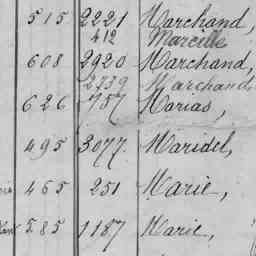 515 2221 Marchand,
412 Mareille
608 2920 Marchand,
2739 Marchand
626 757 Marias,
495 3077 Maridel,
465 251 Marie,
585 1187 Marie,